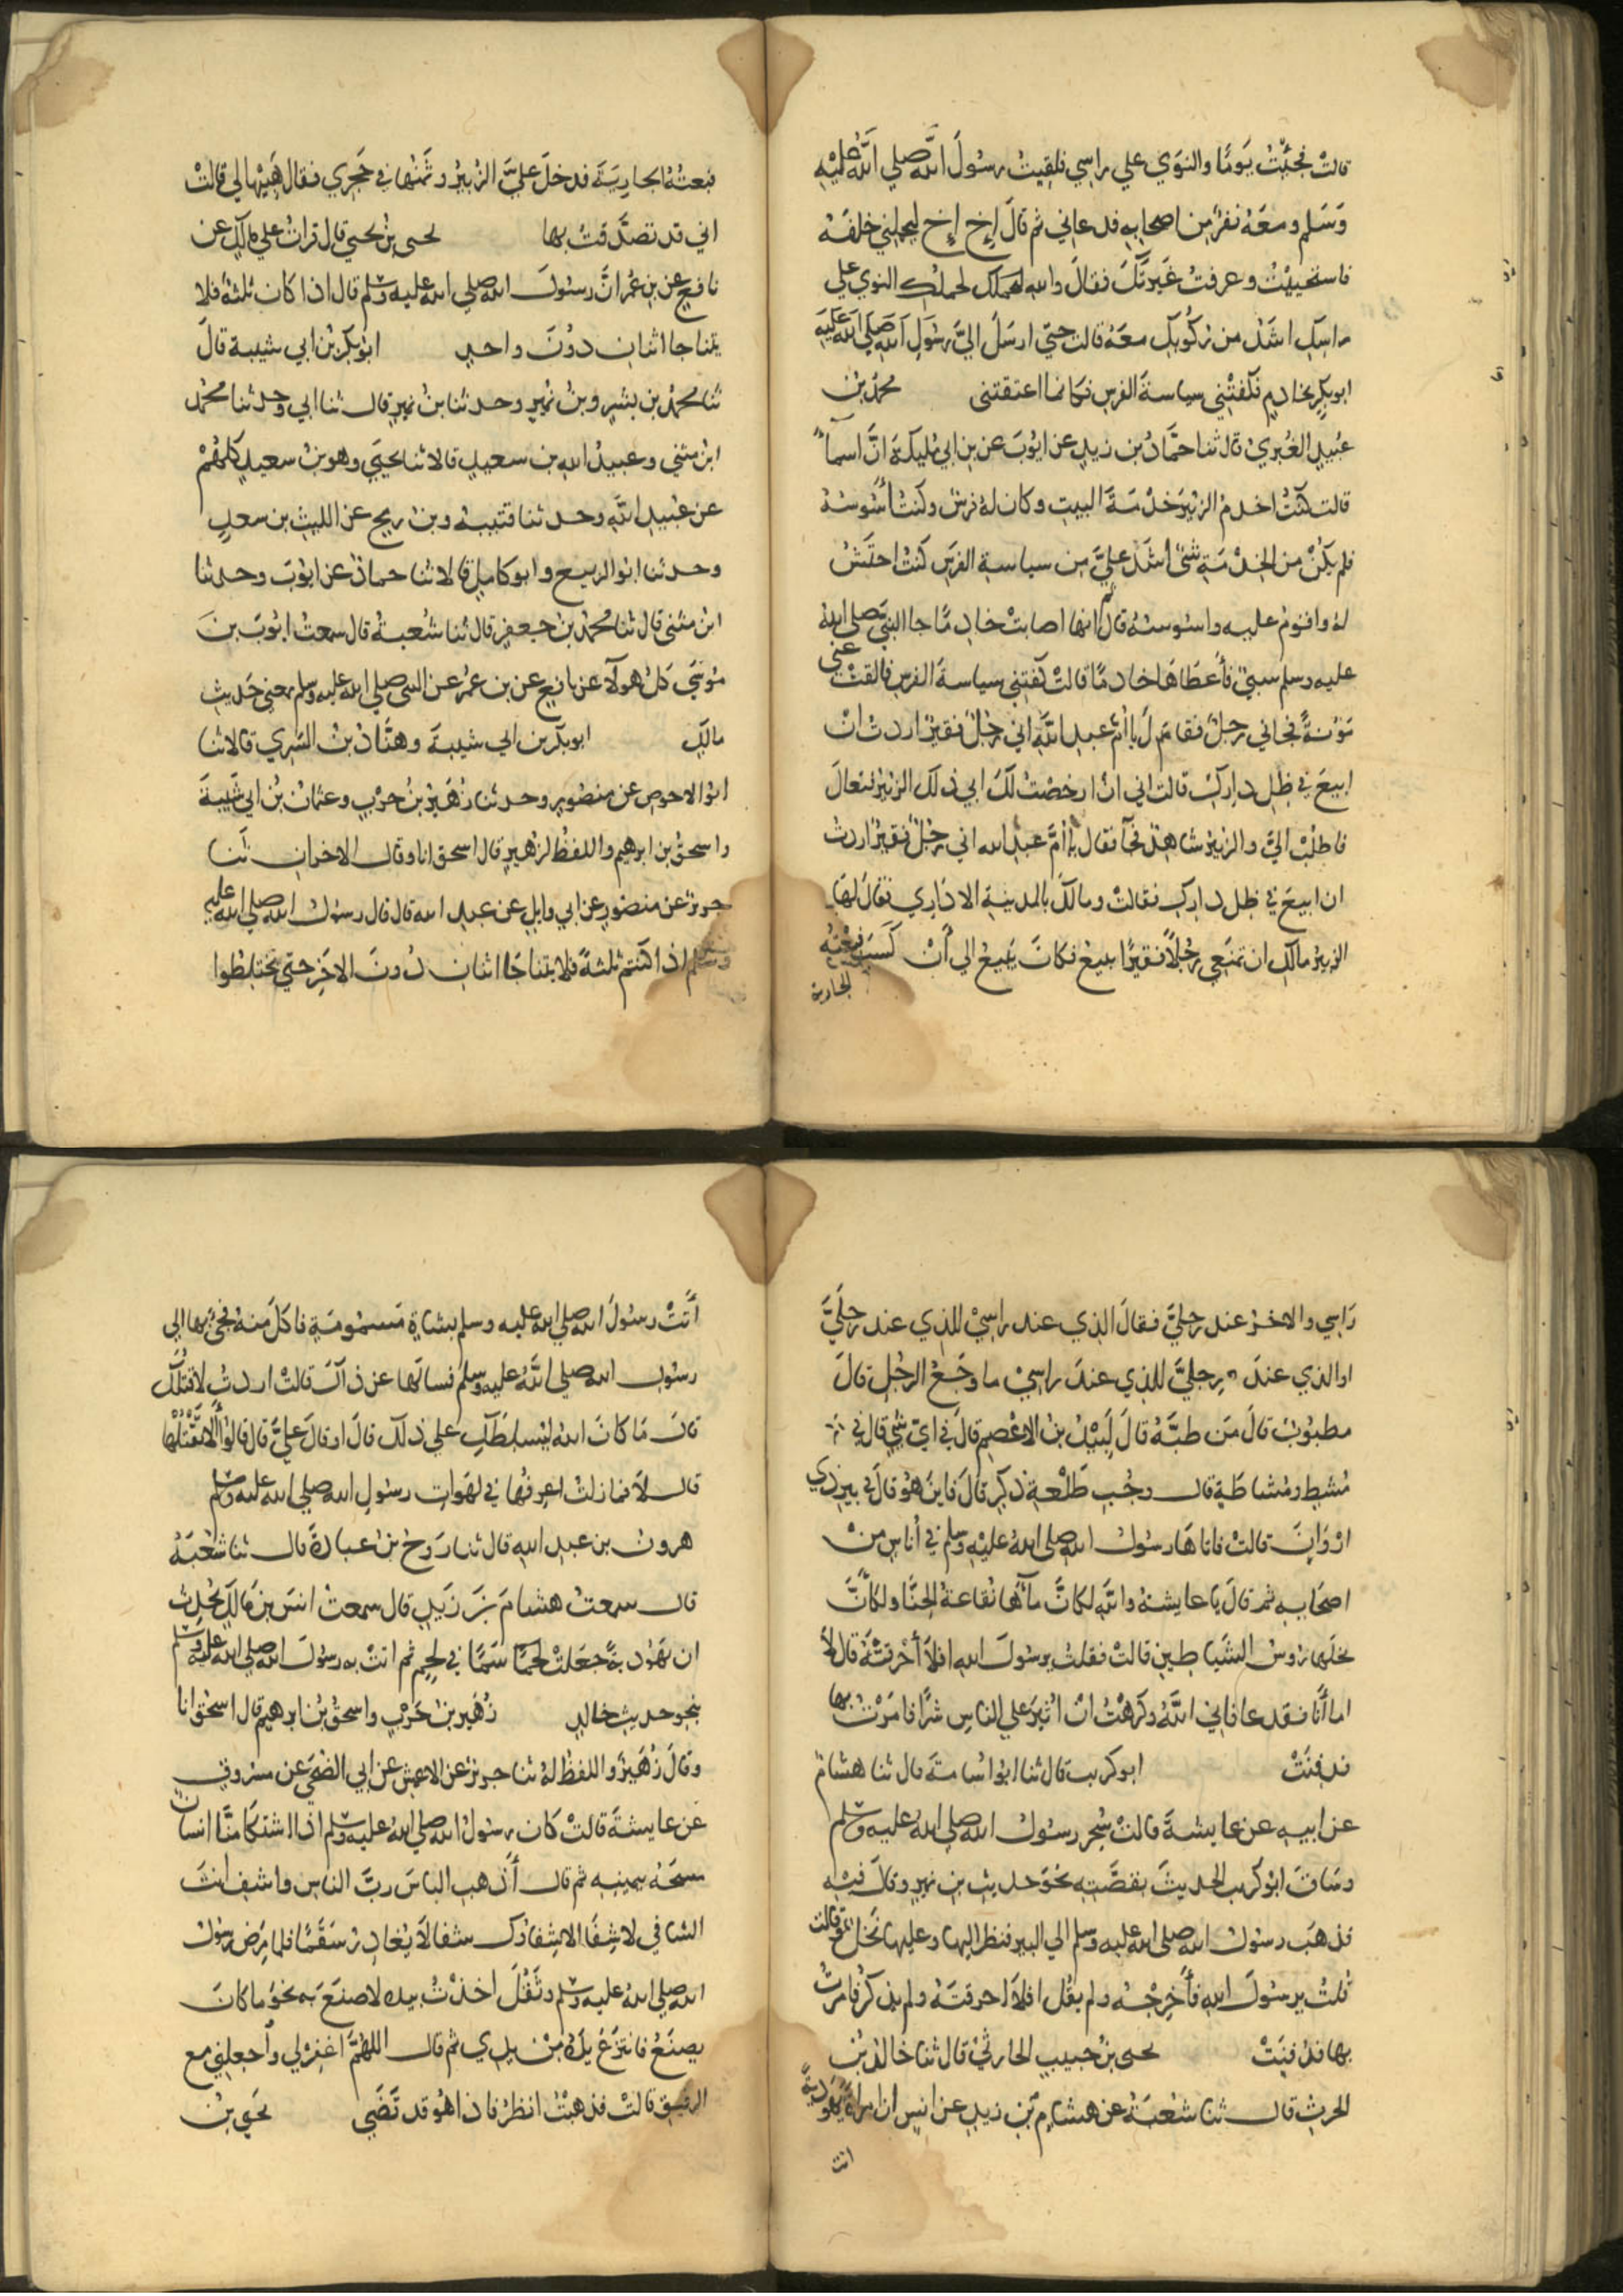 قالتْ فجئتُ يَومًا والنوَي علي راسِي فلقِيتُ رسُولَ الله صلي الله عليْهِ
وَسَلم ومعَهُ نفرٌ مِن اصحابِهِ فدعاني ثم قالَ إخ إخ ليحملِني خلفَهُ
فاستحييْتُ وعرفتُ غَيرتَكَ فقالَ والله لحملكِ النوي علي
راسكِ اشَدّ من رُكُوبكِ معَهُ قالت حتيّ ارسَلَ اليَّ رسُولِ الله صَلي الله عَليَه
ابوبكرٍ بخادمٍ فكفتْني سياسةَ الفرسِ فكانما اعتقتني محمدُ بنُ
عُبيدٍ الغُبرِيُ قال ثنا حمَّادُ بن زيدٍ عن ايوُبَ عن بن ابي مُليكةَ انَّ اسمآءَ
قالت كنتُ اخدمُ الزبيرَ خدْمَةَ البيتِ وكان لهُ فرسٌ وكنتُ أسُوسُهُ
فلم يكُنْ من الخِدْمَةِ شئٌ أشدّ عليَّ مِن سياسةِ الفرَسِ كنتُ احتَشُ
لهُ واقوُمُ عليهِ واسُوسُهُ قال ثم انها اصابتْ خادِمًا جا النبيَّ صلي الله
عليه وسلم سبيٌ فأعطَاهَا خادمًا قالتْ كفتِني سياسةَ الفرس فالقتْ عني
مَوُنةً فجاني رجلٌ فقال ياأمَّ عبدِ اللّهِ اني رجُلٌ فقيرٌ اردتُ انْ
ابيعَ في ظِل دارِكِ قالت اني انْ ارخصْتُ لكَ ابي ذلك الزبيرُ فتعالَ
فاطلبْ اليَّ والزبيرُ شاهِدٌ فجآ فقال ياأمَّ عبدِ الله اني رجُلٌ فقيرٌ اردتُ
ان ابيعَ في ظِل دارِكِ فقالت ومالكَ بالمدينةِ الا دَارِي فقالَ لهَا
الزبيرُ مالكِ ان تمنَعِي رجُلاً فقيرًا يبيعُ فكانَ يَبيعُ الي أنْ كَسَبَ فبعْتهُ
الجارية
فبعتُهُ الجارِيَةَ فدخلَ عليَّ الزبيرُ وثَمنُها في حَجرِي فقال هَبيْهالي قالتْ
اني قد تصدَّقتُ بها يحيي بنُ يحيي قال قراتُ علي مالكٍ عن
نافعٍ عن بن عُمرَ انَّ رسُولَ الله صلي الله عليه وسلم قال اذا كان ثلثةٌ فلا
يتناجا اثنانِ دوُنَ واحِدٍ ابوُبكرِ بنُ ابي شيبة قالَ
ثنا محمدُ بن بشرٍ وبنُ نُميرٍ وحدثنا بنُ نُميرٍ قال ثنا ابي وحدثنا محمدُ
ابنُ مثني وعبيدُ الله بن سعيدٍ قالا ثنا يحيَي وهو بنُ سعيدٍ كلهُمْ
عن عُبيدِ اللّهِ وحدثنا قتيبةُ وبنُ رمحٍ عن الليثِ بن سعدٍ
وحدثنا ابوُ الربيع وابو كاملٍ قالا ثنا حمادٌ عن ايوُبَ وحدثنا
ابنُ مثني قال ثنا محمدُ بنُ جعفرٍ قال ثنا شُعبةُ قال سمعتُ ايوُبَ بنَ
مُوسَي كلُ هولآءِ عن نافعٍ عن بن عُمرَ عن النبي صلي الله عليه وسلم بمعني حَديثِ
مالكٍ ابوبكرِ بن ابي شيبةَ وهنَّادُ بنُ السَرِي قالا ثنا
ابوُ الاحوصِ عن منصُورٍ وحدثنا زُهَيرُ بنُ حرْبٍ وعثمانُ بنُ ابي شَيبَةَ
واسحقُ بن ابرهيم واللفظُ لزهيرٍ قال اسحق انا وقال الاخرانِ ثنا
جريرٌ عن منصُورٍ عن ابي وايلٍ عن عبدِ الله قال قال رسوُلُ الله صلي الله عليه
وسلم اذا كنتم ثلثةً فلا يتناجَا اثنانِ دُونَ الاخرِ حتيَ تختلِطُوا
رَاسِي والاخرُ عند رجليَّ فقالَ الذِي عند راسِيْ للذِي عند رجلَيَّ
اوالذي عندَ رِجليَّ للذِي عندَ راسِيْ ما وجَعُ الرجُلِ قالَ
مطبُوبٌ قالَ مَن طبَّهُ قالَ لَبِيْدُ بنُ الاعْصمِ قالَ في ايّ شيءٍ قال في
مُشطٍ ومُشاطَةٍ قال وجُبِ طَلْعةِ ذكَرٍ قالَ فاينَ هُو قالَ في بيرِ ذِي
ارْوَانَ قالتْ فاتاهَا رسُولُ الله صلي اللهُ عليْهِ وسلم في أناسٍ مِنْ
اصحابهِ ثم قالَ ياعايشةُ واللّهِ لكانَّ مآءَها نُقاعةُ الحِنَّا ولكأنَّ
نخلَها رؤسُ الشَياطِينِ قالتْ فقلتُ يرسُولَ الله افلا أحْرقتَهُ قال لا
اماأنَا فقد عافاني اللّهُ وكرَهْتُ انْ اثيْرَ علي الناسِ شرًّا فامَرْتُ بها
فدفِنَتْ ابوكريب قال ثنا ابوُ اسُامةَ قال ثنا هشامٌ
عن ابيهِ عن عايشةَ قالتْ سُحِرَ رسوُلُ الله صلي اللهُ عليه وسلم
وسَاقَ ابوُ كريب الحديثَ بقصَّتِهِ نحوَ حديثِ بن نميرٍ وقالَ فيْهِ
فذهبَ رسوُلُ الله صلي الله عليه وسلم الي البيرِ فنظرَ اليها وعليها نَخلٌ وقالت
قُلتُ يرسُولَ اللهِ فأَخرِجْهُ ولم يقُل افلاَ احرقتَهُ ولم يذكرْ فامَرْتُ
بها فدُفِنَتْ يحيي بنُ حبيبٍ الحارثيْ قال ثنا خالدُ بنُ
الحرثِ قال ثنا شعْبَةُ عن هشامِ بن زيدٍ عن انسٍ ان امراةً يَهُوديَّةً
اتت
أتتْ رسُولَ الله صلي الله عليه وسلم بشاةٍ مَسمُومَةٍ فاكلَ منهُ فجئَ بها الي
رسُولِ الله صلي اللّهُ عليه وسلم فسالَها عن ذالك قالتْ اردتُ لاقتُلَكَ
قالَ مَا كانَ اللهُ ليُسلطَكِ علي ذلك قالَ اوقالَ عليَّ قال قالوُا ألا نَقْتُلُها
قال لاَ فمازلتُ اعرِفُها في لهَواتِ رسُولِ الله صلي الله عليه وسلم
هرونُ بن عبدِ اللهِ قال ثنا رَوحُ بنُ عبادةَ قال ثنا شُعْبَةُ
قال سمعتُ هشامَ بنَ زَيدٍ قال سمعتُ انسَ بنَ مَالكٍ يُحدِثُ
ان يَهُوديةً جعَلتْ سَمًّا في لحمٍ ثم اتتْ به رسُولَ الله صلي الله عليه وسلم
بنحوِ حديثِ خالدٍ زُهَيرُ بنُ حَرْبٍ واسحقُ بنُ ابرهيم قال اسحقُ انا
وقالَ زُهَيرٌ واللفظُ لهُ ثنا جريرٌ عن الاعمشِ عن ابي الضُحَي عن مسروقٍ
عن عايشةَ قالتْ كان رسُولُ الله صلي اللهُ عليه وسلم اذا اشتكا منَّا انسانٌ
مسحَهُ بيمينِهِ ثم قال أذهبِ الباسَ ربَّ الناسِ واشفِ انتَ
الشافي لا شِفَا الا شِفاؤُك شفا لاَ يُغادِرُ سَقَمًا فلما مَرِضَ رسُولُ
الله صلي اللهُ عليه وسلم وثَقُلَ اخذْتُ بيدِه لاصنَعَ بهِ نحوُ ماكانَ
يصنَعُ فانتزعَ يدَهُ مِنْ يدِي ثم قال اللهُمَّ اغفِرْلي وأجعلني مع
الرفيقِ قالتْ فذهبْتُ انظرُ فاذا هُو قد قَضَي يحَيي بنُ